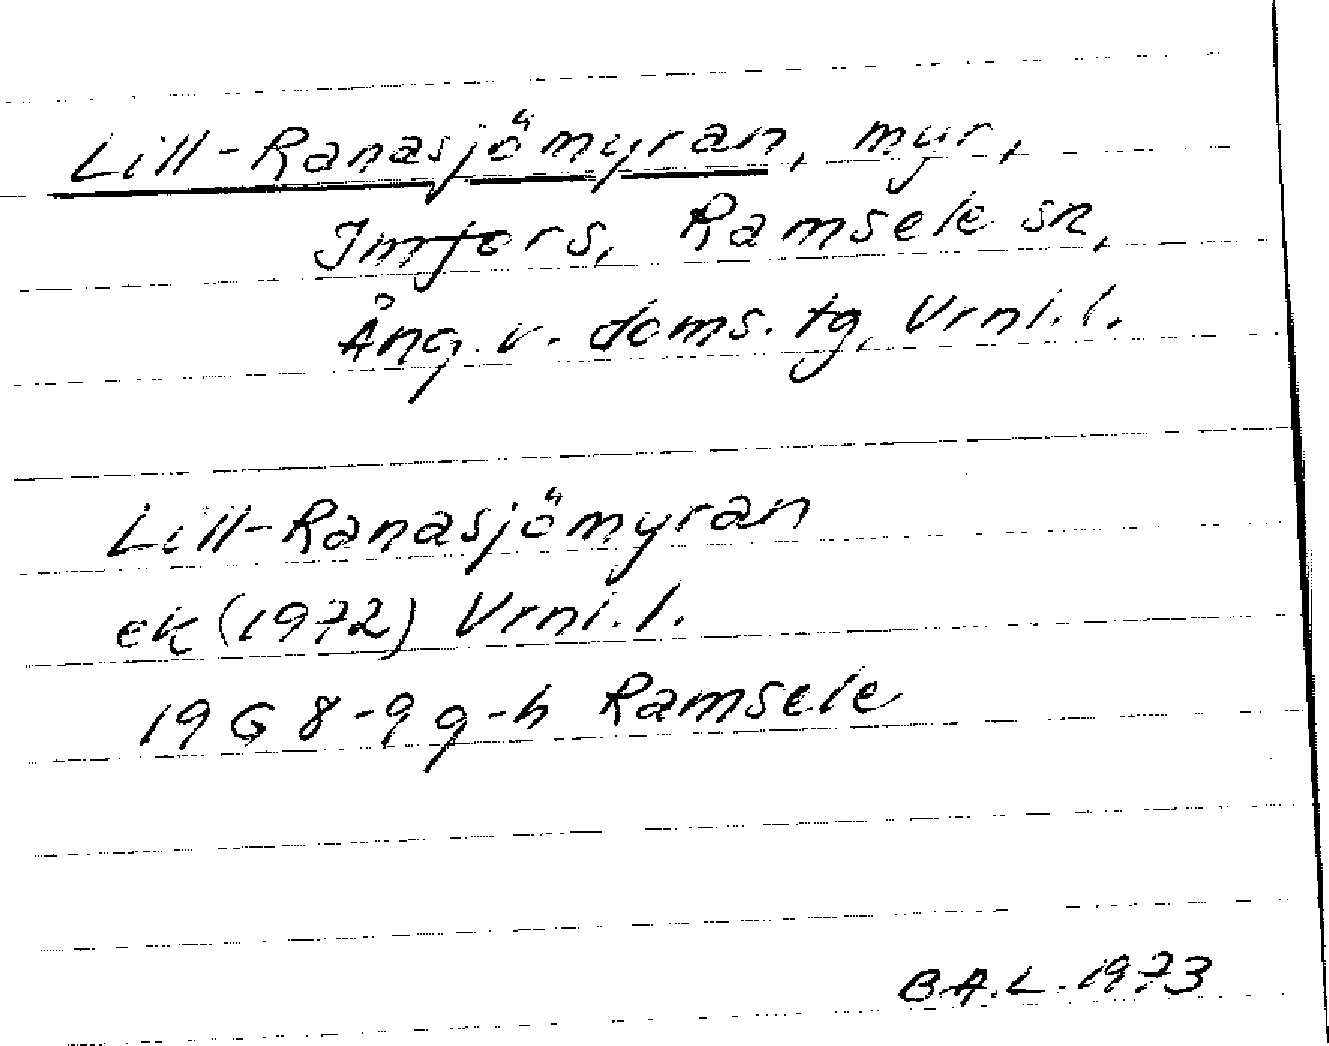 Lill-Ranasjömyran, myr,
Imfors, Ramsele sn,
Ång. v. doms. tg, Vrnl. l.
Lill-Ranasjömyran
ek (1972) Vrnl. l.
19 G 8-9 g-h Ramsele
B.A.L. 1973